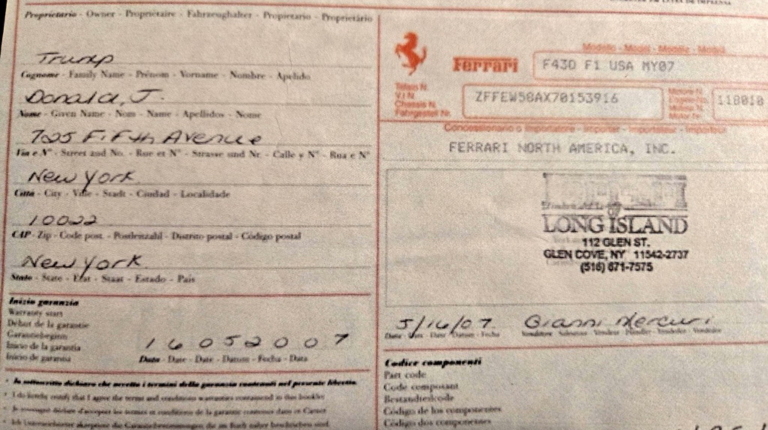 Proprietario - Owner - Propriétaire - Fahrzeughalter - Propietario - Proprietário
Trump
Cognome - Family Name - Prénom - Vorname - Nombre - Apelido
Donald, J.
Nome - Given Name - Nom - Name - Apellidos - Nome
725 Fifth Avenue
Via e N° - Street and No. - Rue et N° - Strasse und Nr. - Calle y N° - Rua e N°
New York
Città - City - Ville - Stadt - Ciudad - Localidade
10022
CAP - Zip - Code post. - Postleitzahl - Distrito postal - Código postal
New York
Stato - State - Etat - Staat - Estado - Pais
Inizio garanzia
Warranty start
Début de la garantie
Garantiebeginn
Inicio de la garantía
Inicio de garantia
16052007
Data - Date - Date - Datum - Fecha - Data
In sottoscritto dichiaro che accetto i termini della garanzia contenuti nel presente libretto
I do hereby certify that I agree the terms and conditions warranties contained in this booklet
Ferrari
Modello - Model - Modèle - Modell
F430 F1 USA MY07
Telaio N.
V.I.N.
Chassis N.
Fahrgestell Nr.
ZFFEW58AX70153916
Motore N.
118010
Concessionario o Importatore - Importer - Importateur - Importeur
FERRARI NORTH AMERICA, INC.
LONG ISLAND
112 GLEN ST.
GLEN COVE, NY 11542-2737
(516) 671-7575
5/16/07 Gianni Mercuri
Data - Date - Date - Datum - Fecha
Venditore - Salesman - Vendeur
Codice componenti
Part code
Code composant
Bestandteilcode
Código de los componentes
Código dos componentes